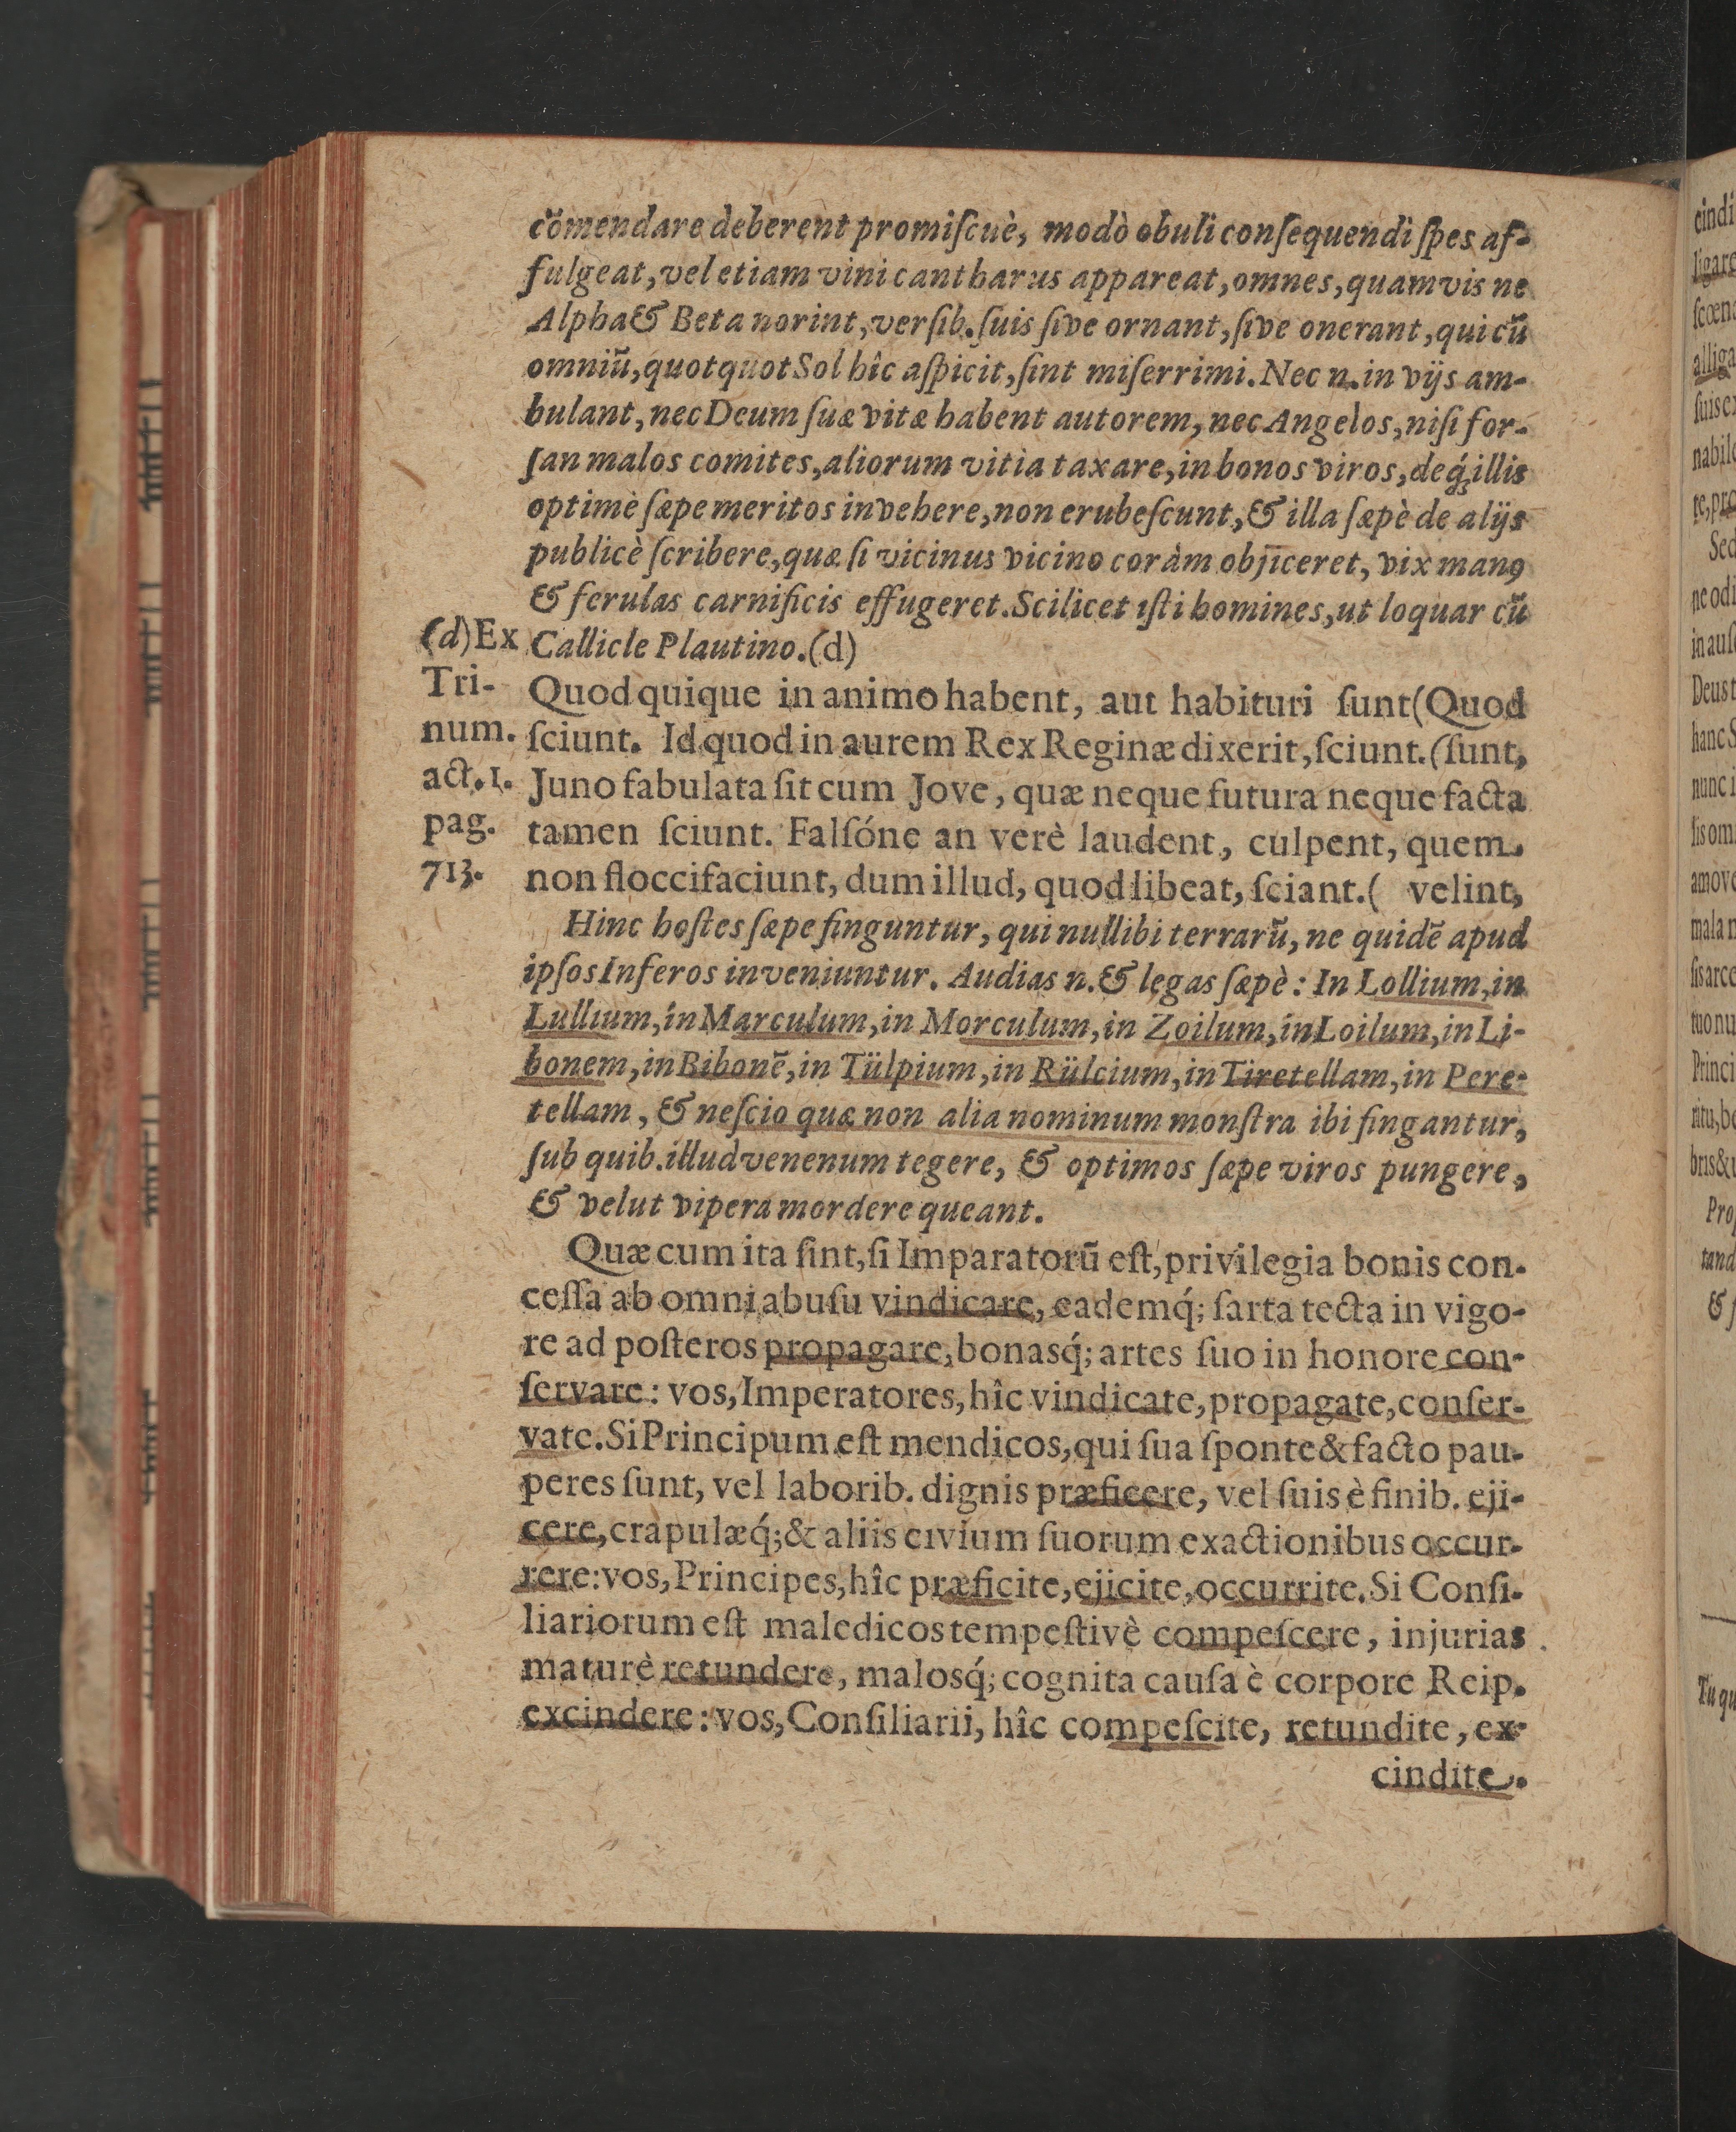 cõmendare deberent promiſcuè, modò obuli conſequendi ſpes af-
fulgeat, vel etiam vini cantharus appareat, omnes, quamvis ne
Alpha & Beta norint, verſib. ſuis ſive ornant, ſive onerant, qui cũ
omniũ, quotquot Sol hîc aſpicit, ſint miſerrimi. Nec n. in vijs am-
bulant, nec Deum ſuæ vitæ habent autorem, nec Angelos, niſi for-
ſan malos comites, aliorum vitia taxare, in bonos viros, deq́; illis
optimè ſæpe meritos invehere, non erubeſcunt, & illa ſæpè de alijs
publicè ſcribere, quæ ſi vicinus vicino coràm objiceret, vix manꝰ
& ferulas carnificis effugeret. Scilicet iſti homines, ut loquar cũ
Callicle Plautino. (d)
(d) Ex
Tri-
num.
act. 1.
pag.
713.
Quod quique in animo habent, aut habituri ſunt (Quod
ſciunt. Id quod in aurem Rex Reginæ dixerit, ſciunt. (ſunt,
Juno fabulata ſit cum Jove, quæ neque futura neque facta
tamen ſciunt. Falſóne an verè laudent, culpent, quem
non floccifaciunt, dum illud, quod libeat, ſciant. ( velint,
Hinc hoſtes ſæpe finguntur, qui nullibi terrarũ, ne quidẽ apud
ipſos Inferos inveniuntur. Audias n. & legas ſæpè: In Lollium, in
Lullium, in Marculum, in Morculum, in Zoilum, in Loilum, in Li-
bonem, in Bibonẽ, in Tülpium, in Rülcium, in Tiretellam, in Pere-
tellam, & neſcio quæ non alia nominum monſtra ibi fingantur,
ſub quib. illud venenum tegere, & optimos ſæpe viros pungere,
& velut vipera mordere queant.
Quæ cum ita ſint, ſi Imparatorũ eſt, privilegia bonis con-
ceſſa ab omni abuſu vindicare, eademq́; ſarta tecta in vigo-
re ad poſteros propagare, bonasq́; artes ſuo in honore con-
ſervare: vos, Imperatores, hîc vindicate, propagate, conſer-
vate. Si Principum eſt mendicos, qui ſua ſponte & facto pau-
peres ſunt, vel laborib. dignis præficere, vel ſuis è finib. eji-
cere, crapulæq́; & aliis civium ſuorum exactionibus occur-
rere: vos, Principes, hîc præficite, ejicite, occurrite. Si Conſi-
liariorum eſt maledicos tempeſtivè compeſcere, injurias
maturè retundere, malosq́; cognita cauſa è corpore Reip.
excindere: vos, Conſiliarii, hîc compeſcite, retundite, ex-
cindite.